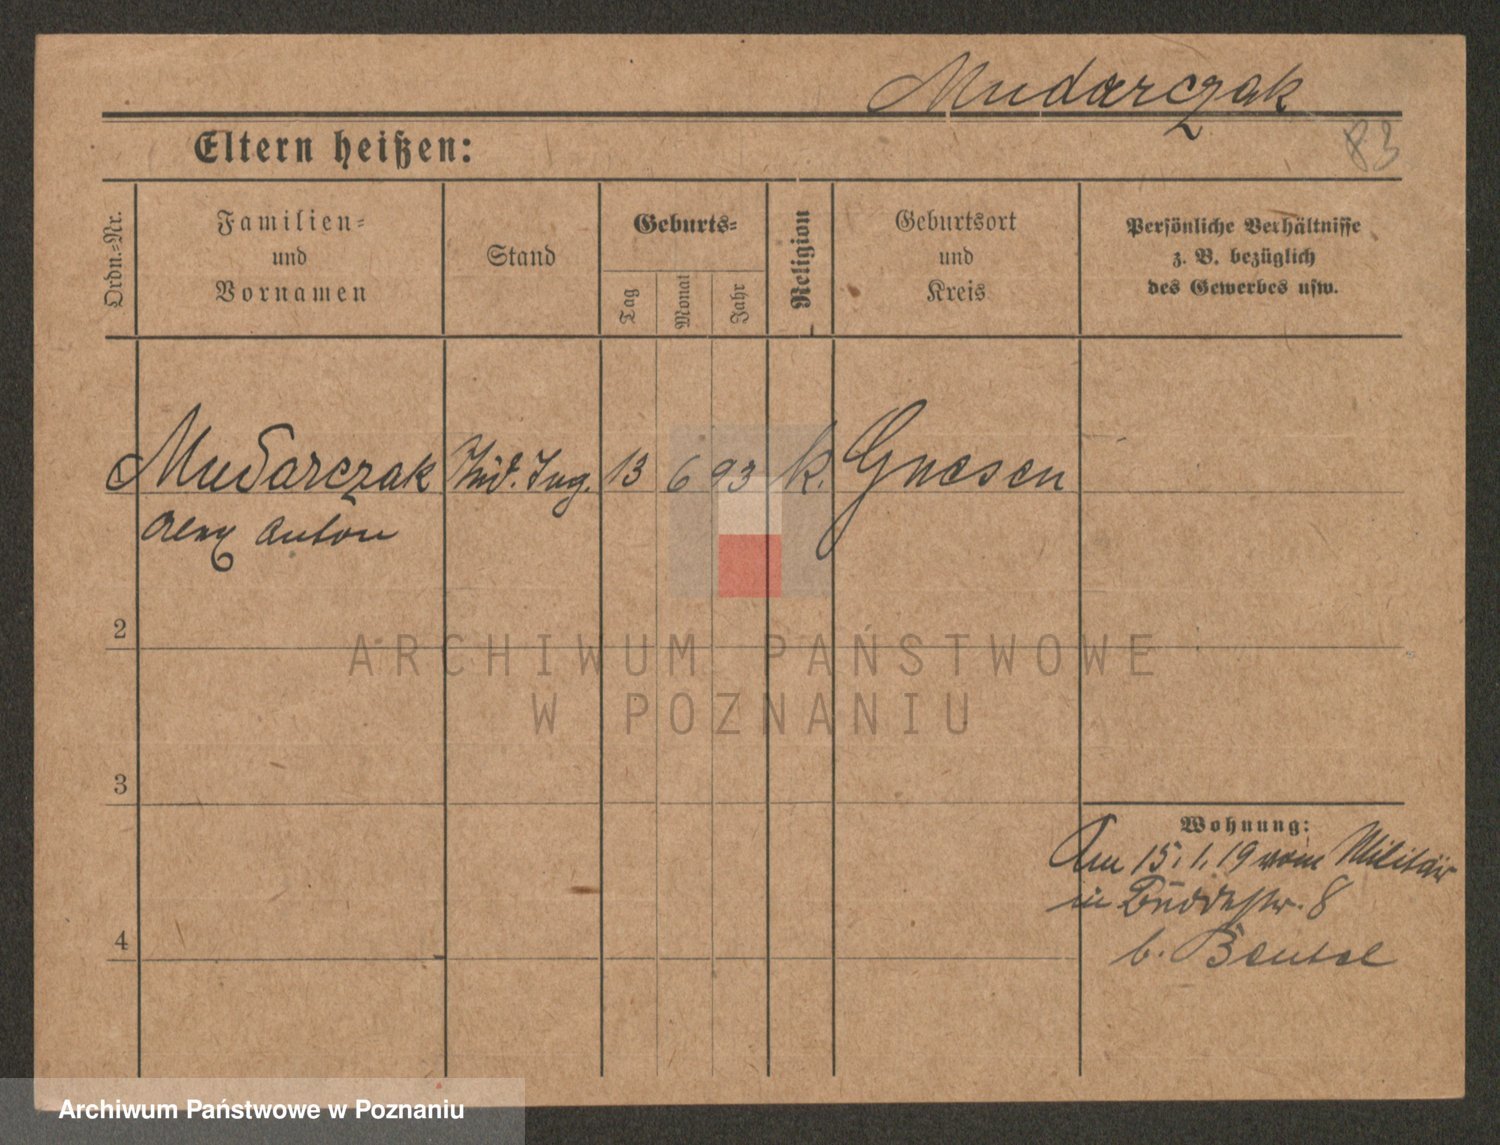 Mudarczak
83
Eltern heißen:
Ordn.-Nr.
Familien-
und
Vornamen
Stand
Geburts-
Tag
Monat
Jahr
Religion
Geburtsort
und
Kreis
Persönliche Verhältnisse
z. B. bezüglich
des Gewerbes usw.
Mudarczak Stud. Ing. 13 6 93 k. Gnesen
Alex Anton
2
ARCHIWUM PAŃSTWOWE
W POZNANIU
3
Wohnung:
Am 15.1.19 vom Militär
in Buddestr. 8
4
b.
Archiwum Państwowe w Poznaniu